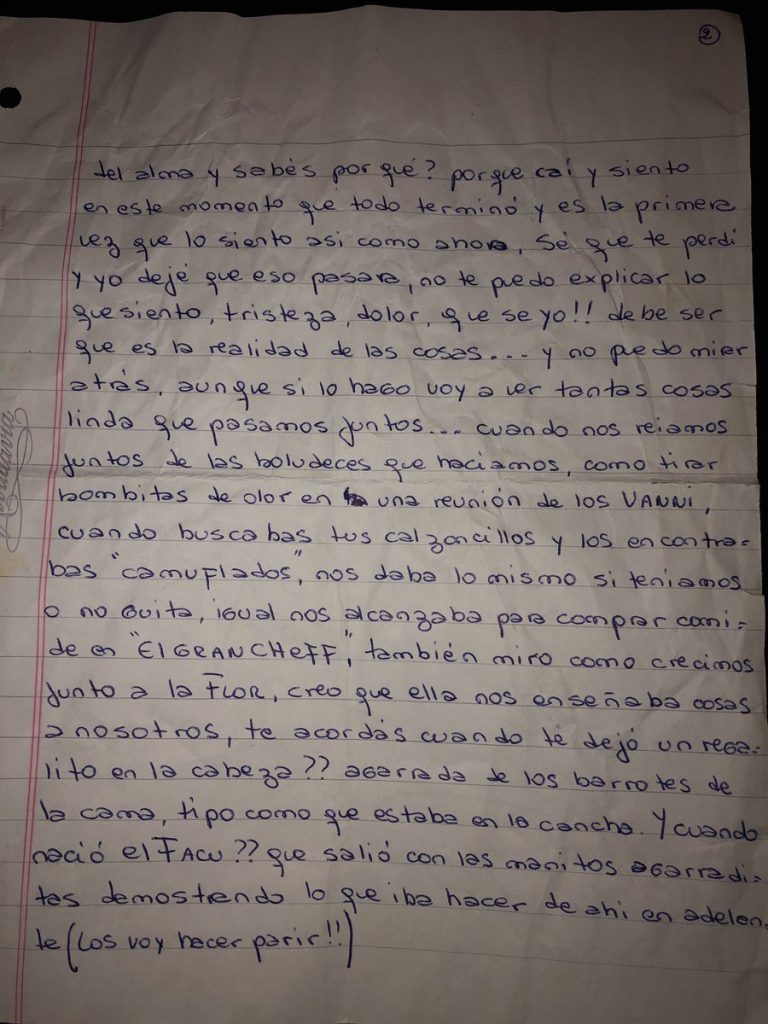 2
del alma y sabés por qué? porque caí y siento
en este momento que todo terminó y es la primera
vez que lo siento asi como ahora, Sé que te perdi
y yo dejé que eso pasara, no te puedo explicar lo
que siento, tristeza, dolor, que se yo!! debe ser
que es la realidad de las cosas... y no puedo mier
atrás, aunque si lo hago voy a ver tantas cosas
linda que pasamos juntos... cuando nos reiamos
juntos de las boludeces que haciamos, como tirar
bombitas de olor en una reunión de los VANNI,
cuando buscabas tus calzoncillos y los encontra-
bas "camuflados", nos daba lo mismo si teniamos
o no guita, igual nos alcanzaba para comprar comi=
da en "El GRAN CHEFF", también miro como crecimos
junto a la FLOR, creo que ella nos enseñaba cosas
a nosotros, te acordás cuando té dejó un rega-
lito en la cabeza?? agarrada de los barrotes de
la cama, tipo como que estaba en la cancha. Y cuando
nació el FACU?? que salió con las manitos agarradi=
tas demostrando lo que iba hacer de ahi en adelan-
te (Los voy hacer parir!!)